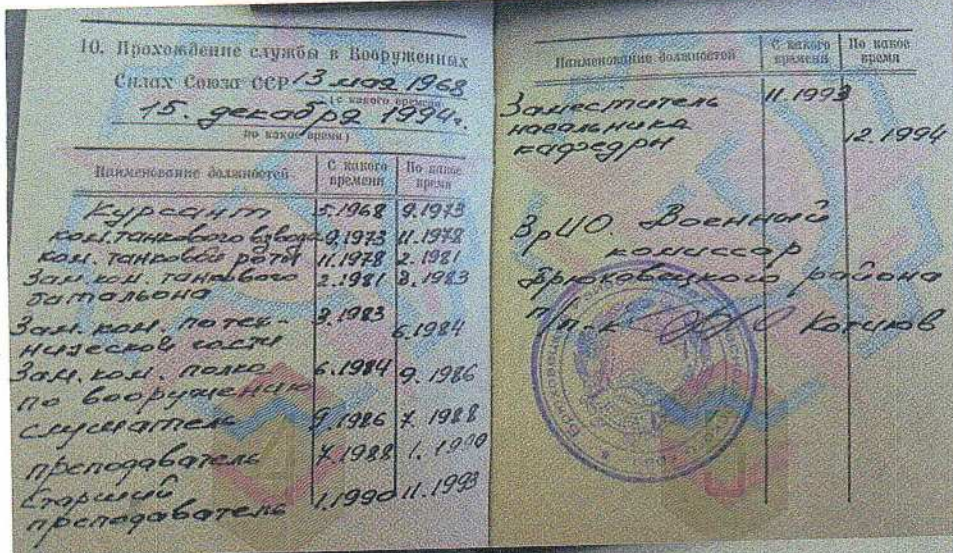 10. Прохождение службы в Вооруженных
Силах Союза ССР 13 мая 1968
(с какого времени
15. декабря 1994г.
по какое время)
Наименование должностей С какого времени По какое время
Курсант 5.1968 9.1973
ком. танкового взвода 9.1973 11.1978
ком. танковой роты 11.1978 2.1981
Зам. ком. танкового 2.1981 8.1983
батальона
Зам. ком. по тех- 8.1983
нической части 6.1984
Зам. ком. полка 6.1984 9.1986
по вооружению
слушатель 9.1986 7.1988
преподаватель 7.1988 1.1990
Старший
преподаватель 1.1990 11.1993
Наименование должностей С какого времени По какое время
Заместитель 11.1993
начальника
кафедры 12.1994
ВрИО. Военный
комиссар
Брюховецкого района
п/п-к Котиков